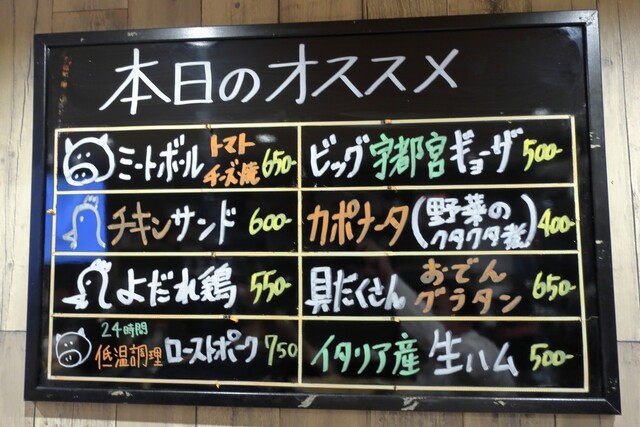 本日のオススメ
ミートボール トマトチーズ焼 650-
ビッグ宇都宮ギョーザ 500-
チキンサンド 600-
カポナータ(野菜のクタクタ煮) 400-
よだれ鶏 550-
具だくさんおでんグラタン 650-
24時間低温調理ローストポーク 750
イタリア産生ハム 500-